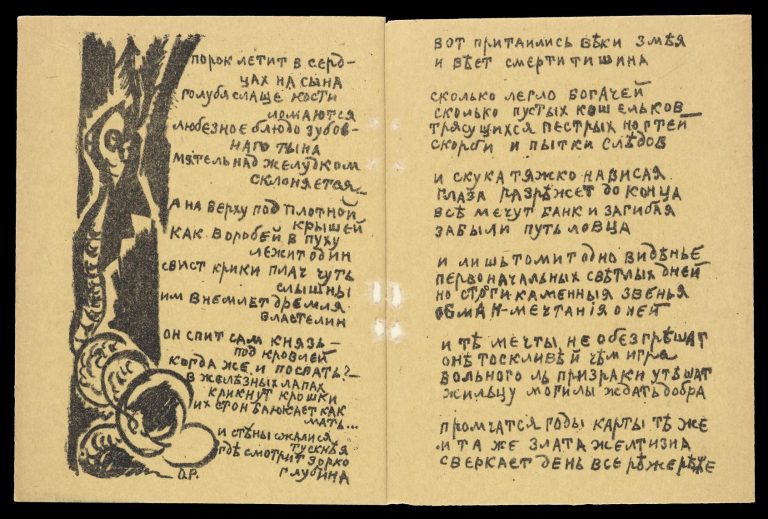 порок летит в серд-
цах на сына
голубя слаще кости
ломаются
любезное блюдо зубов-
наго тына
мятель над желудком
склоняется
А на верху под плотной
крышей
как воробей в пуху
лежит один
свист крики плач чуть
слышны
им внемлет дремля
властелин
он спит сам князь—
под кровлей
когда же и поспать?—
в желѣзных лапах
крикнут крошки
их стон баюкает как
мать...
и стѣны сжалися
тускнѣя
гдѣ смотрит зорко
глубина
О.Р.
вот притаились вѣки змѣя
и вѣет смерти тишина
сколько легло богачей
сколько пустых кошельков—
трясущихся пестрых ногтей
скорби и пытки слѣдов
и скука тяжко нависая
глаза разрѣжет до конца
всѣ мечут банк и загибая
забыли путь ловца
и лишь томит одно видѣнье
первоначальных свѣтлых дней
но строги каменныя звенья
обман-мечтанія о ней
и тѣ мечты не обезгрѣшат
онѣ тоскливѣй чѣм игра
больного ль призраки утѣшат
жильцу могилы ждать добра
промчатся годы карты тѣ же
и та же злата желтизна
сверкает день все рѣже рѣже